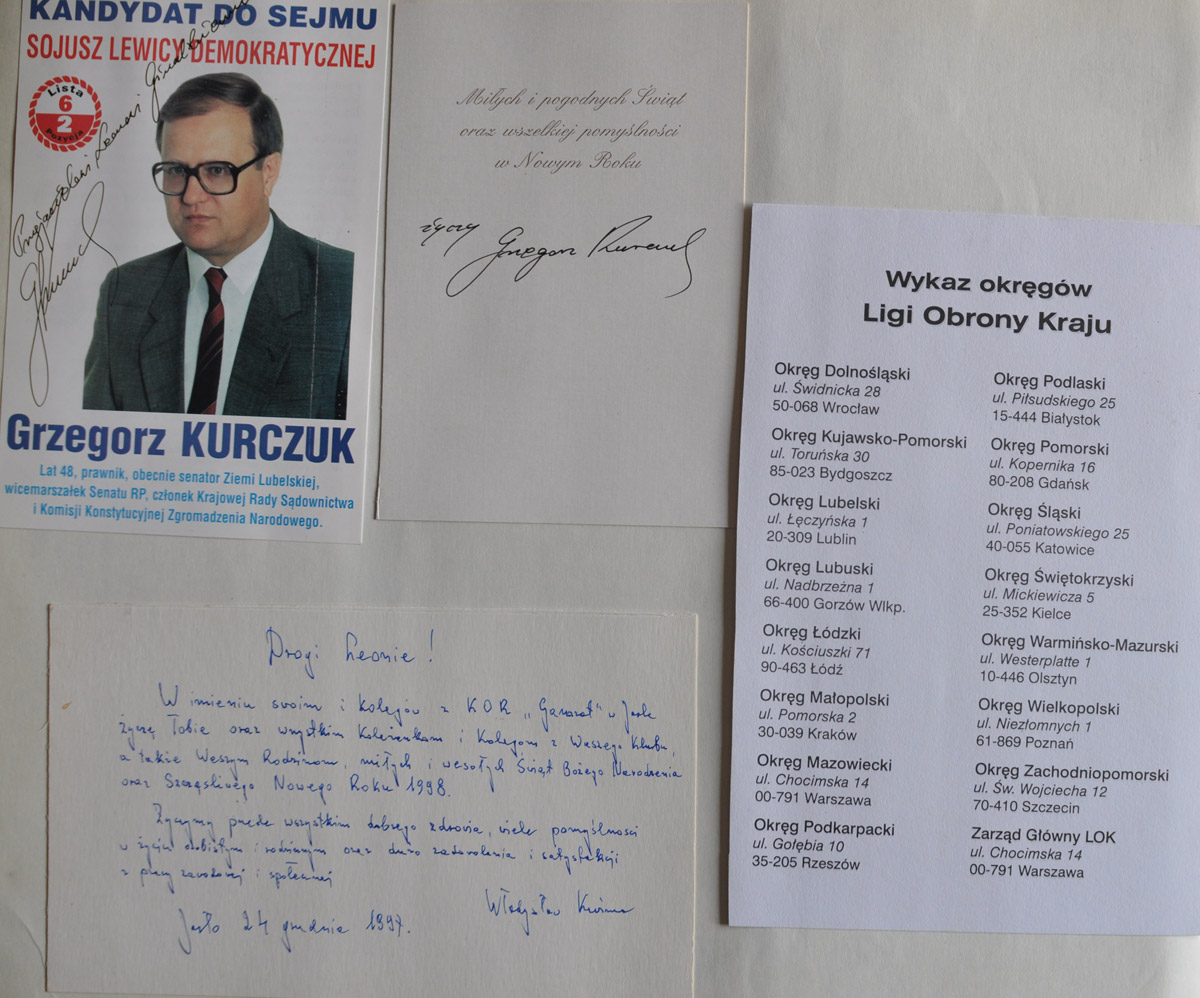 KANDYDAT DO SEJMU
SOJUSZ LEWICY DEMOKRATYCZNEJ
Lista
6
2
Pozycja
Grzegorz KURCZUK
Lat 48, prawnik, obecnie senator Ziemi Lubelskiej,
wicemarszałek Senatu RP, członek Krajowej Rady Sądownictwa
i Komisji Konstytucyjnej Zgromadzenia Narodowego.
Miłych i pogodnych Świąt
oraz wszelkiej pomyślności
w Nowym Roku
życzy Grzegorz Kurczuk
Drogi Leonie!
W imieniu swoim i kolegów z KOR „Gamrat” w Jaśle
życzę Tobie oraz wszystkim Koleżankom i Kolegom z Waszego Klubu,
a także Waszym Rodzinom, miłych i wesołych Świąt Bożego Narodzenia
oraz Szczęśliwego Nowego Roku 1998.
Życzymy przede wszystkim dobrego zdrowia, wiele pomyślności
w życiu osobistym i rodzinnym oraz dużo zadowolenia i satysfakcji
z pracy zawodowej i społecznej
Władysław
Jasło 24 grudnia 1997.
Wykaz okręgów
Ligi Obrony Kraju
Okręg Dolnośląski
ul. Świdnicka 28
50-068 Wrocław
Okręg Kujawsko-Pomorski
ul. Toruńska 30
85-023 Bydgoszcz
Okręg Lubelski
ul. Łęczyńska 1
20-309 Lublin
Okręg Lubuski
ul. Nadbrzeżna 1
66-400 Gorzów Wlkp.
Okręg Łódzki
ul. Kościuszki 71
90-463 Łódź
Okręg Małopolski
ul. Pomorska 2
30-039 Kraków
Okręg Mazowiecki
ul. Chocimska 14
00-791 Warszawa
Okręg Podkarpacki
ul. Gołębia 10
35-205 Rzeszów
Okręg Podlaski
ul. Piłsudskiego 25
15-444 Białystok
Okręg Pomorski
ul. Kopernika 16
80-208 Gdańsk
Okręg Śląski
ul. Poniatowskiego 25
40-055 Katowice
Okręg Świętokrzyski
ul. Mickiewicza 5
25-352 Kielce
Okręg Warmińsko-Mazurski
ul. Westerplatte 1
10-446 Olsztyn
Okręg Wielkopolski
ul. Niezłomnych 1
61-869 Poznań
Okręg Zachodniopomorski
ul. Św. Wojciecha 12
70-410 Szczecin
Zarząd Główny LOK
ul. Chocimska 14
00-791 Warszawa